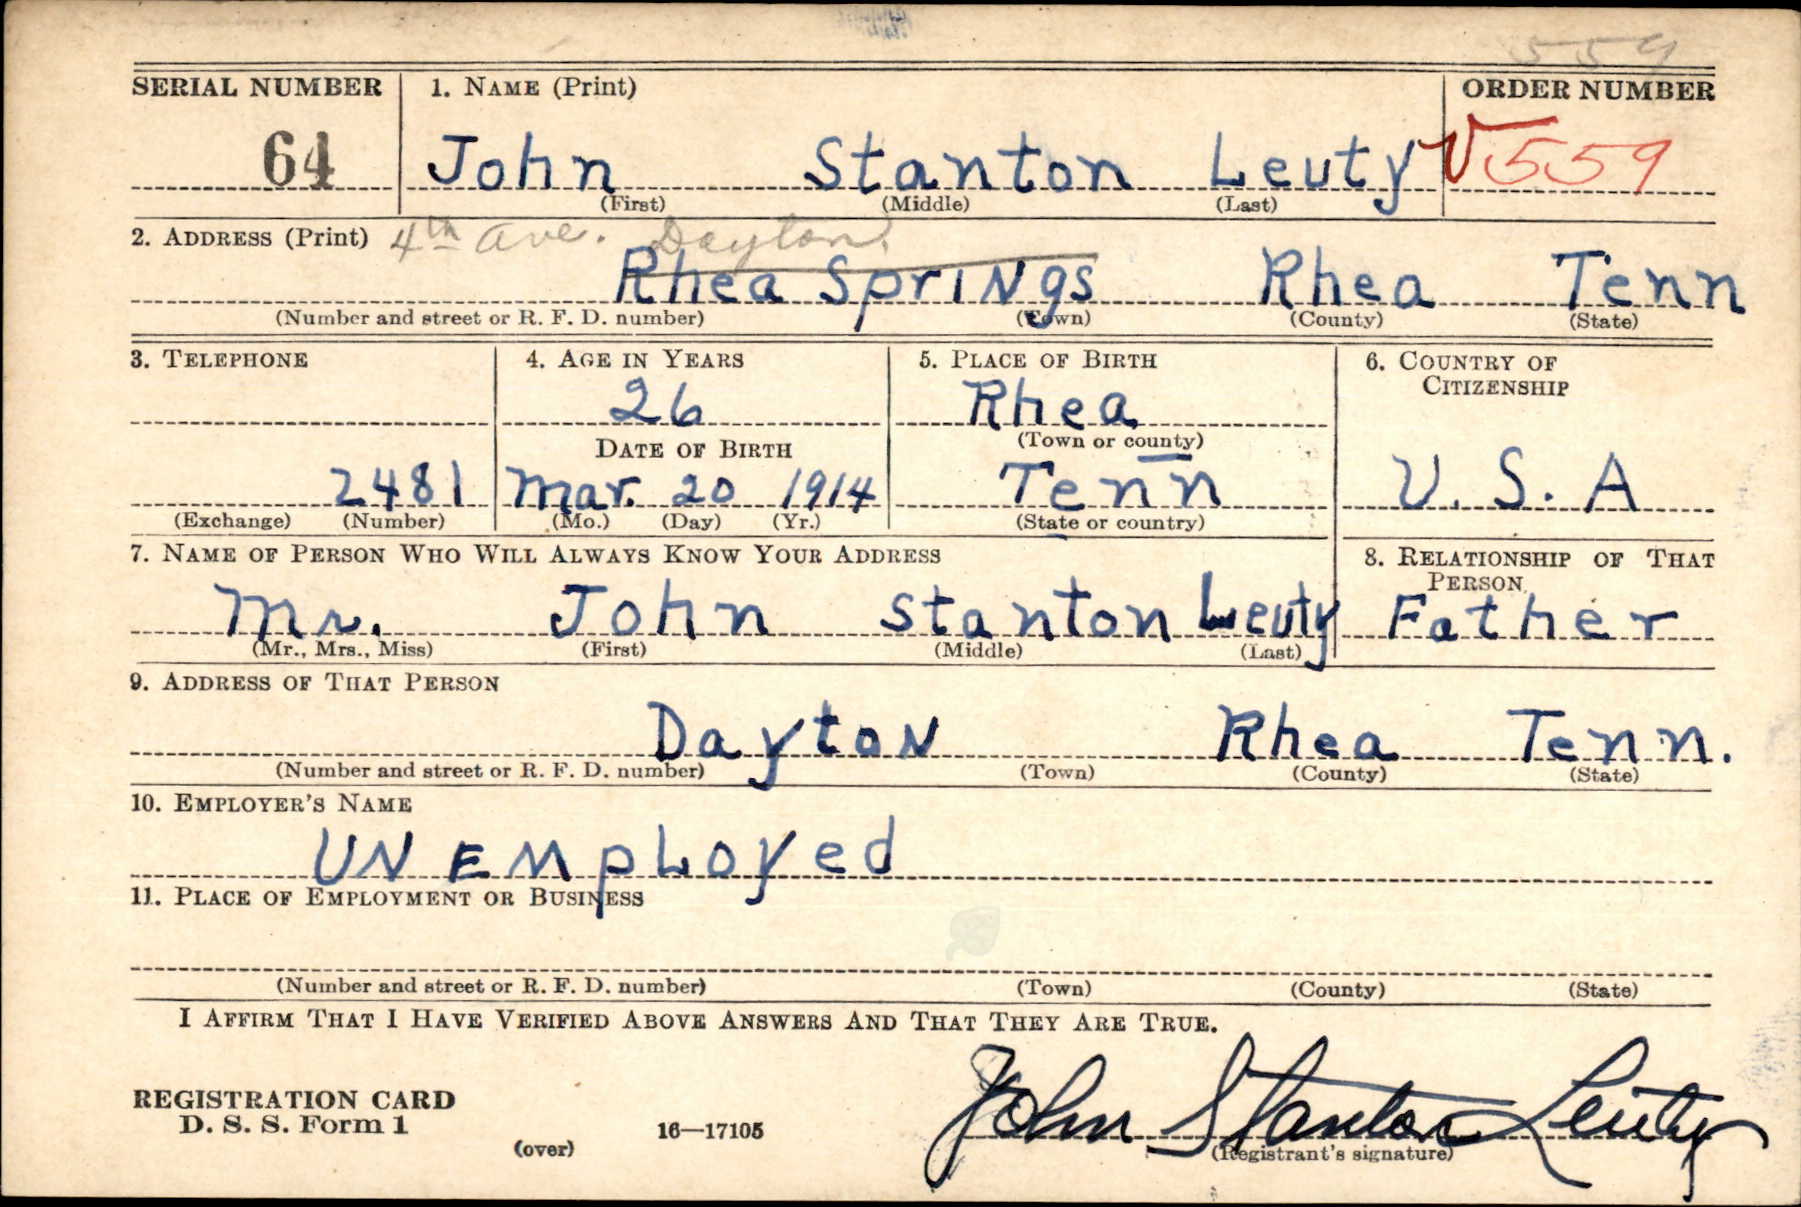 559
SERIAL NUMBER 1. NAME (Print) ORDER NUMBER
64 John Stanton Leuty V559
(First) (Middle) (Last)
2. ADDRESS (Print) 4th ave. Dayton
Rhea Springs Rhea Tenn
(Number and street or R. F. D. number) (Town) (County) (State)
3. TELEPHONE 4. AGE IN YEARS 5. PLACE OF BIRTH 6. COUNTRY OF
CITIZENSHIP
26 Rhea
DATE OF BIRTH (Town or county)
2481 Mar. 20 1914 Tenn U. S. A
(Exchange) (Number) (Mo.) (Day) (Yr.) (State or country)
7. NAME OF PERSON WHO WILL ALWAYS KNOW YOUR ADDRESS 8. RELATIONSHIP OF THAT
PERSON
Mr. John Stanton Leuty Father
(Mr., Mrs., Miss) (First) (Middle) (Last)
9. ADDRESS OF THAT PERSON
Dayton Rhea Tenn.
(Number and street or R. F. D. number) (Town) (County) (State)
10. EMPLOYER'S NAME
UNEMpLoyed
11. PLACE OF EMPLOYMENT OR BUSINESS
(Number and street or R. F. D. number) (Town) (County) (State)
I AFFIRM THAT I HAVE VERIFIED ABOVE ANSWERS AND THAT THEY ARE TRUE.
REGISTRATION CARD
D. S. S. Form 1
(over) 16—17105 John Stanton Leuty
(Registrant's signature)